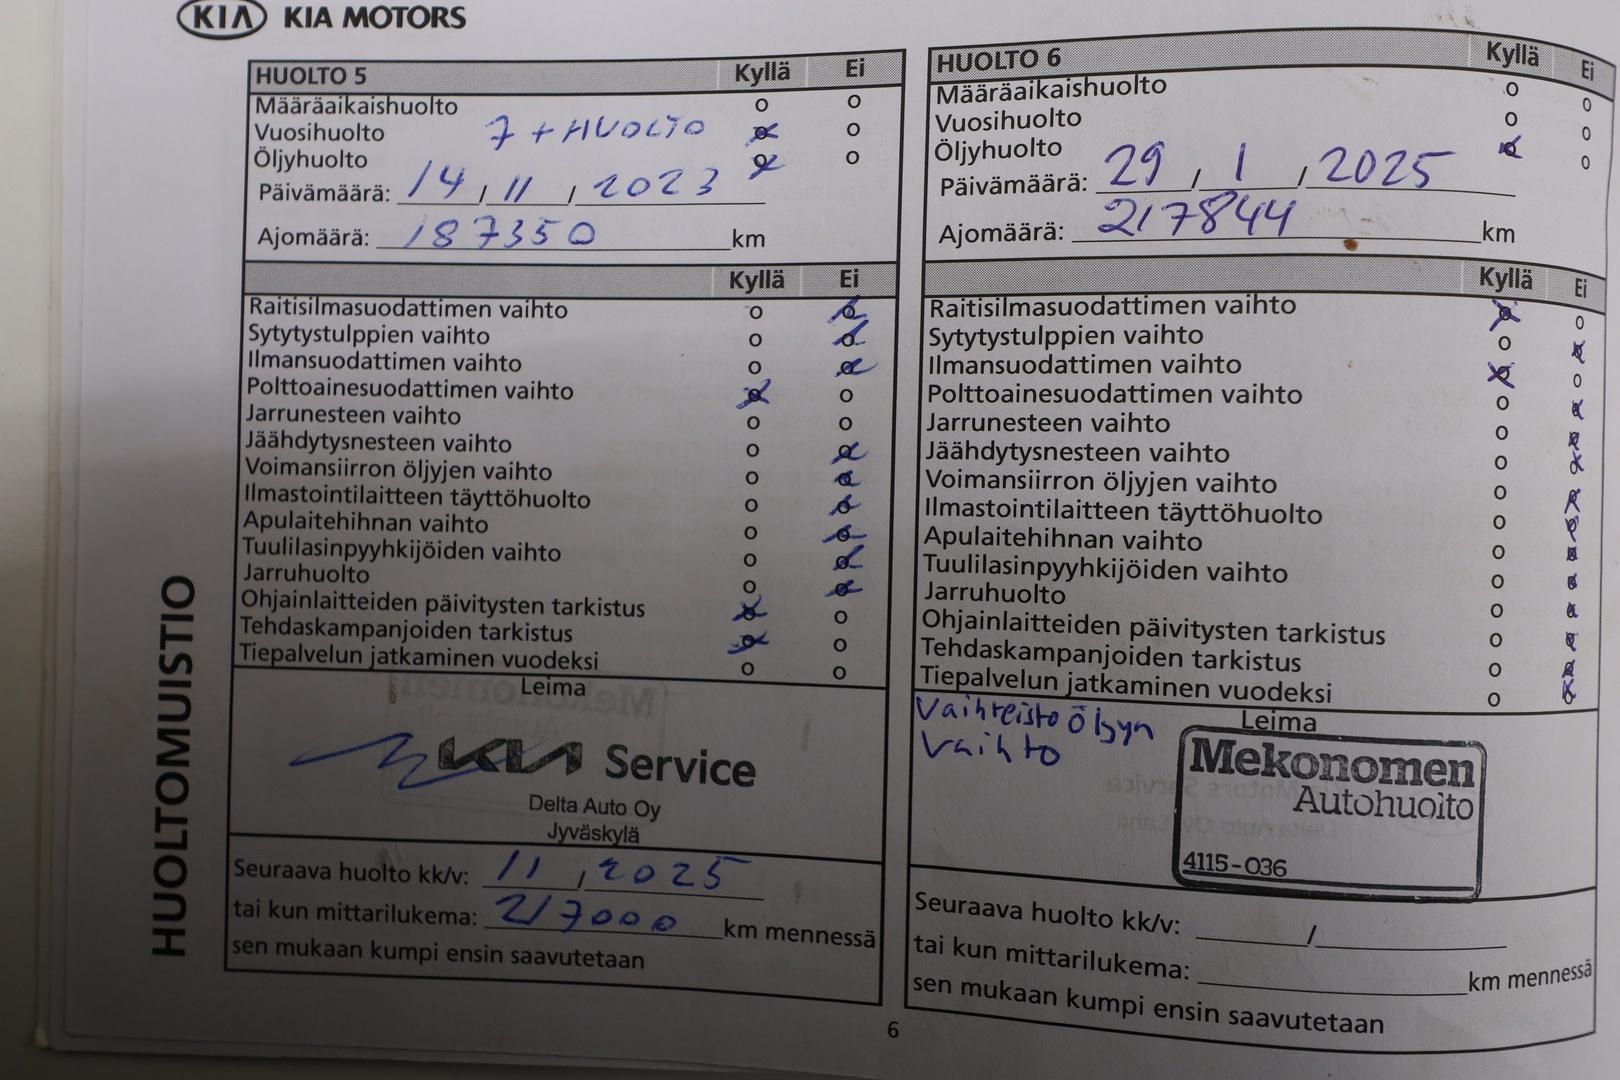 KIA KIA MOTORS
HUOLTO 5 Kyllä Ei
Määräaikaishuolto o o
Vuosihuolto 7 + HUOLTO o
Öljyhuolto o
Päivämäärä: 14 / 11 / 2023
Ajomäärä: 187350 km
Kyllä Ei
Raitisilmasuodattimen vaihto
Sytytystulppien vaihto
Ilmansuodattimen vaihto
Polttoainesuodattimen vaihto
Jarrunesteen vaihto
Jäähdytysnesteen vaihto
Voimansiirron öljyjen vaihto
Ilmastointilaitteen täyttöhuolto
Apulaitehihnan vaihto
Tuulilasinpyyhkijöiden vaihto
Jarruhuolto
Ohjainlaitteiden päivitysten tarkistus
Tehdaskampanjoiden tarkistus
Tiepalvelun jatkaminen vuodeksi
Leima
KIA Service
Delta Auto Oy
Jyväskylä
Seuraava huolto kk/v: 11 / 2025
tai kun mittarilukema: 217000 km mennessä
sen mukaan kumpi ensin saavutetaan
HUOLTO 6 Kyllä Ei
Määräaikaishuolto
Vuosihuolto
Öljyhuolto
Päivämäärä: 29 / 1 / 2025
Ajomäärä: 217844 km
Kyllä Ei
Raitisilmasuodattimen vaihto
Sytytystulppien vaihto
Ilmansuodattimen vaihto
Polttoainesuodattimen vaihto
Jarrunesteen vaihto
Jäähdytysnesteen vaihto
Voimansiirron öljyjen vaihto
Ilmastointilaitteen täyttöhuolto
Apulaitehihnan vaihto
Tuulilasinpyyhkijöiden vaihto
Jarruhuolto
Ohjainlaitteiden päivitysten tarkistus
Tehdaskampanjoiden tarkistus
Tiepalvelun jatkaminen vuodeksi
Leima
Vaihteisto öljyn
vaihto
Mekonomen
Autohuolto
4115-036
Seuraava huolto kk/v: /
tai kun mittarilukema: km mennessä
sen mukaan kumpi ensin saavutetaan
HUOLTOMUISTIO
6